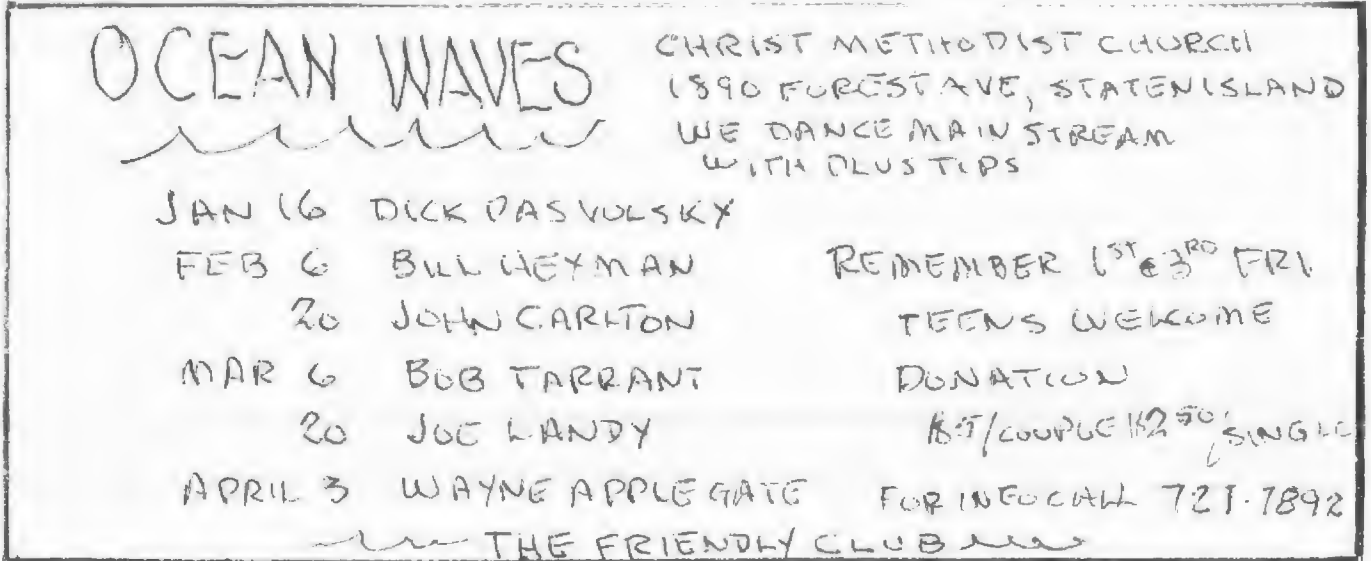 OCEAN WAVES
CHRIST METHODIST CHURCH
1890 FOREST AVE, STATEN ISLAND
WE DANCE MAINSTREAM
WITH PLUS TIPS
JAN 16 DICK PASVOLSKY
FEB 6 BILL HEYMAN
20 JOHN CARLTON
MAR 6 BOB TARRANT
20 JOE LANDY
APRIL 3 WAYNE APPLEGATE
REMEMBER 1ST & 3RD FRI
TEENS WELCOME
DONATION
$5/COUPLE $2 50/SINGLE
FOR INFO CALL 727-7892
THE FRIENDLY CLUB